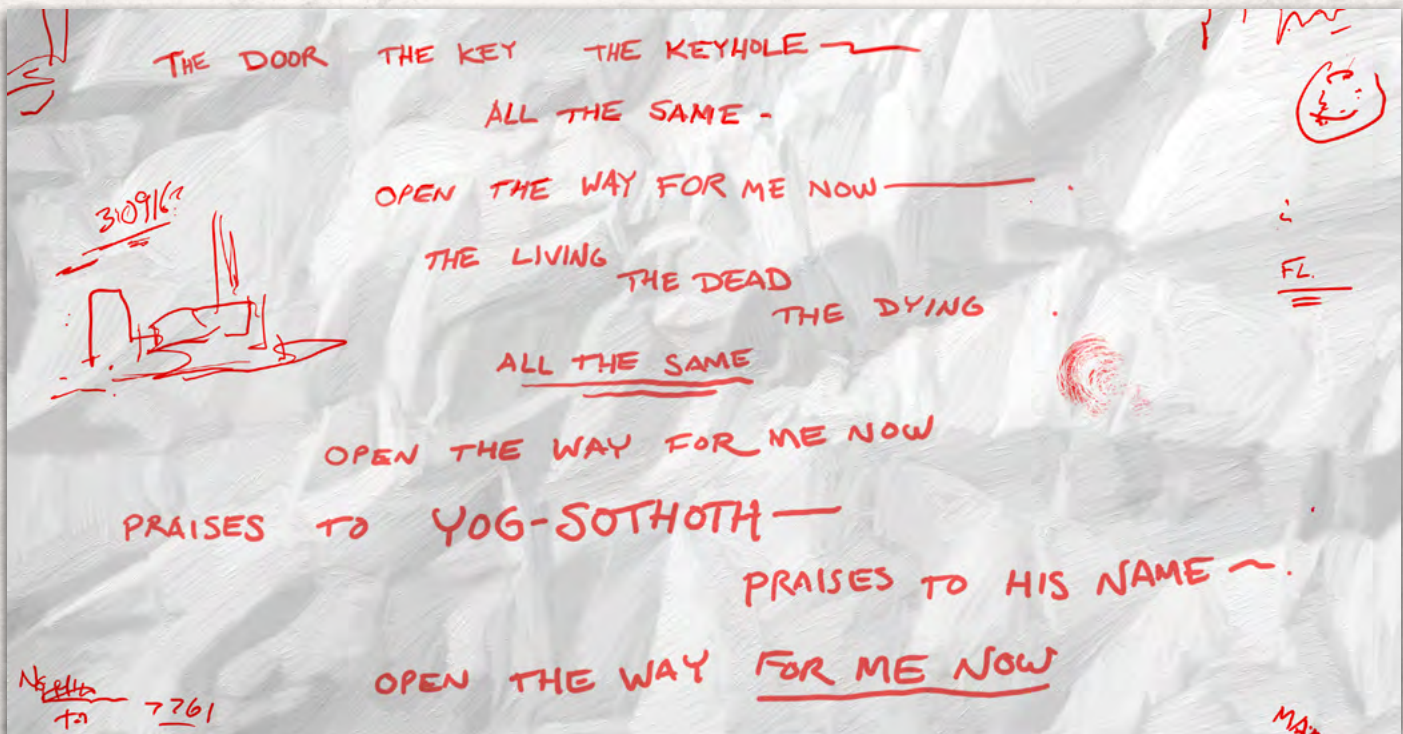 THE DOOR THE KEY THE KEYHOLE —
ALL THE SAME -
OPEN THE WAY FOR ME NOW —
310916?
THE LIVING
THE DEAD
THE DYING
FL.
ALL THE SAME
OPEN THE WAY FOR ME NOW
PRAISES TO YOG-SOTHOTH —
PRAISES TO HIS NAME ~
OPEN THE WAY FOR ME NOW